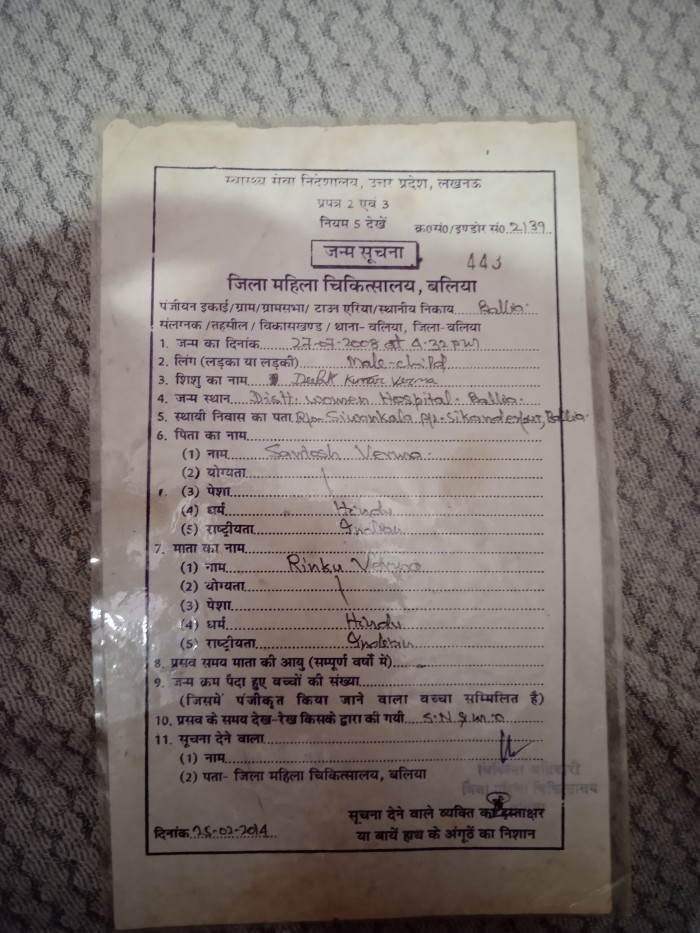 स्वास्थ्य सेवा निदेशालय, उत्तर प्रदेश, लखनऊ
प्रपत्र 2 एवं 3
नियम 5 देखें
क्र०सं०/इण्डोर सं० 2139
जन्म सूचना
443
जिला महिला चिकित्सालय, बलिया
पंजीयन इकाई/ग्राम/ग्रामसभा/ टाउन एरिया/स्थानीय निकाय Ballia
संलगनक /तहसील / विकासखण्ड / थाना- बलिया, जिला-बलिया
1. जन्म का दिनांक 27-07-2008 at 4.32 pm
2. लिंग (लड़का या लड़की) Male-child
3. शिशु का नाम Kumar Verma
4. जन्म स्थान Distt. Women Hospital. Ballia.
5. स्थायी निवास का पता R/o Siwankala Sikanderpur, Ballia.
6. पिता का नाम
(1) नाम Santosh Verma
(2) योग्यता
(3) पेशा
(4) धर्म Hindu
(5) राष्ट्रीयता Indian
7. माता का नाम
(1) नाम Rinku Verma
(2) योग्यता
(3) पेशा
(4) धर्म Hindu
(5) राष्ट्रीयता Indian
8. प्रसव समय माता की आयु (सम्पूर्ण वर्षों में)
9. जन्म क्रम पैदा हुए बच्चों की संख्या
(जिसमें पंजीकृत किया जाने वाला बच्चा सम्मिलित है)
10. प्रसव के समय देख-रेख किसके द्वारा की गयी
11. सूचना देने वाला
(1) नाम
(2) पता- जिला महिला चिकित्सालय, बलिया
जिला महिला चिकित्सालय
सूचना देने वाले व्यक्ति का हस्ताक्षर
या बायें हाथ के अंगूठें का निशान
दिनांक 25-02-2014